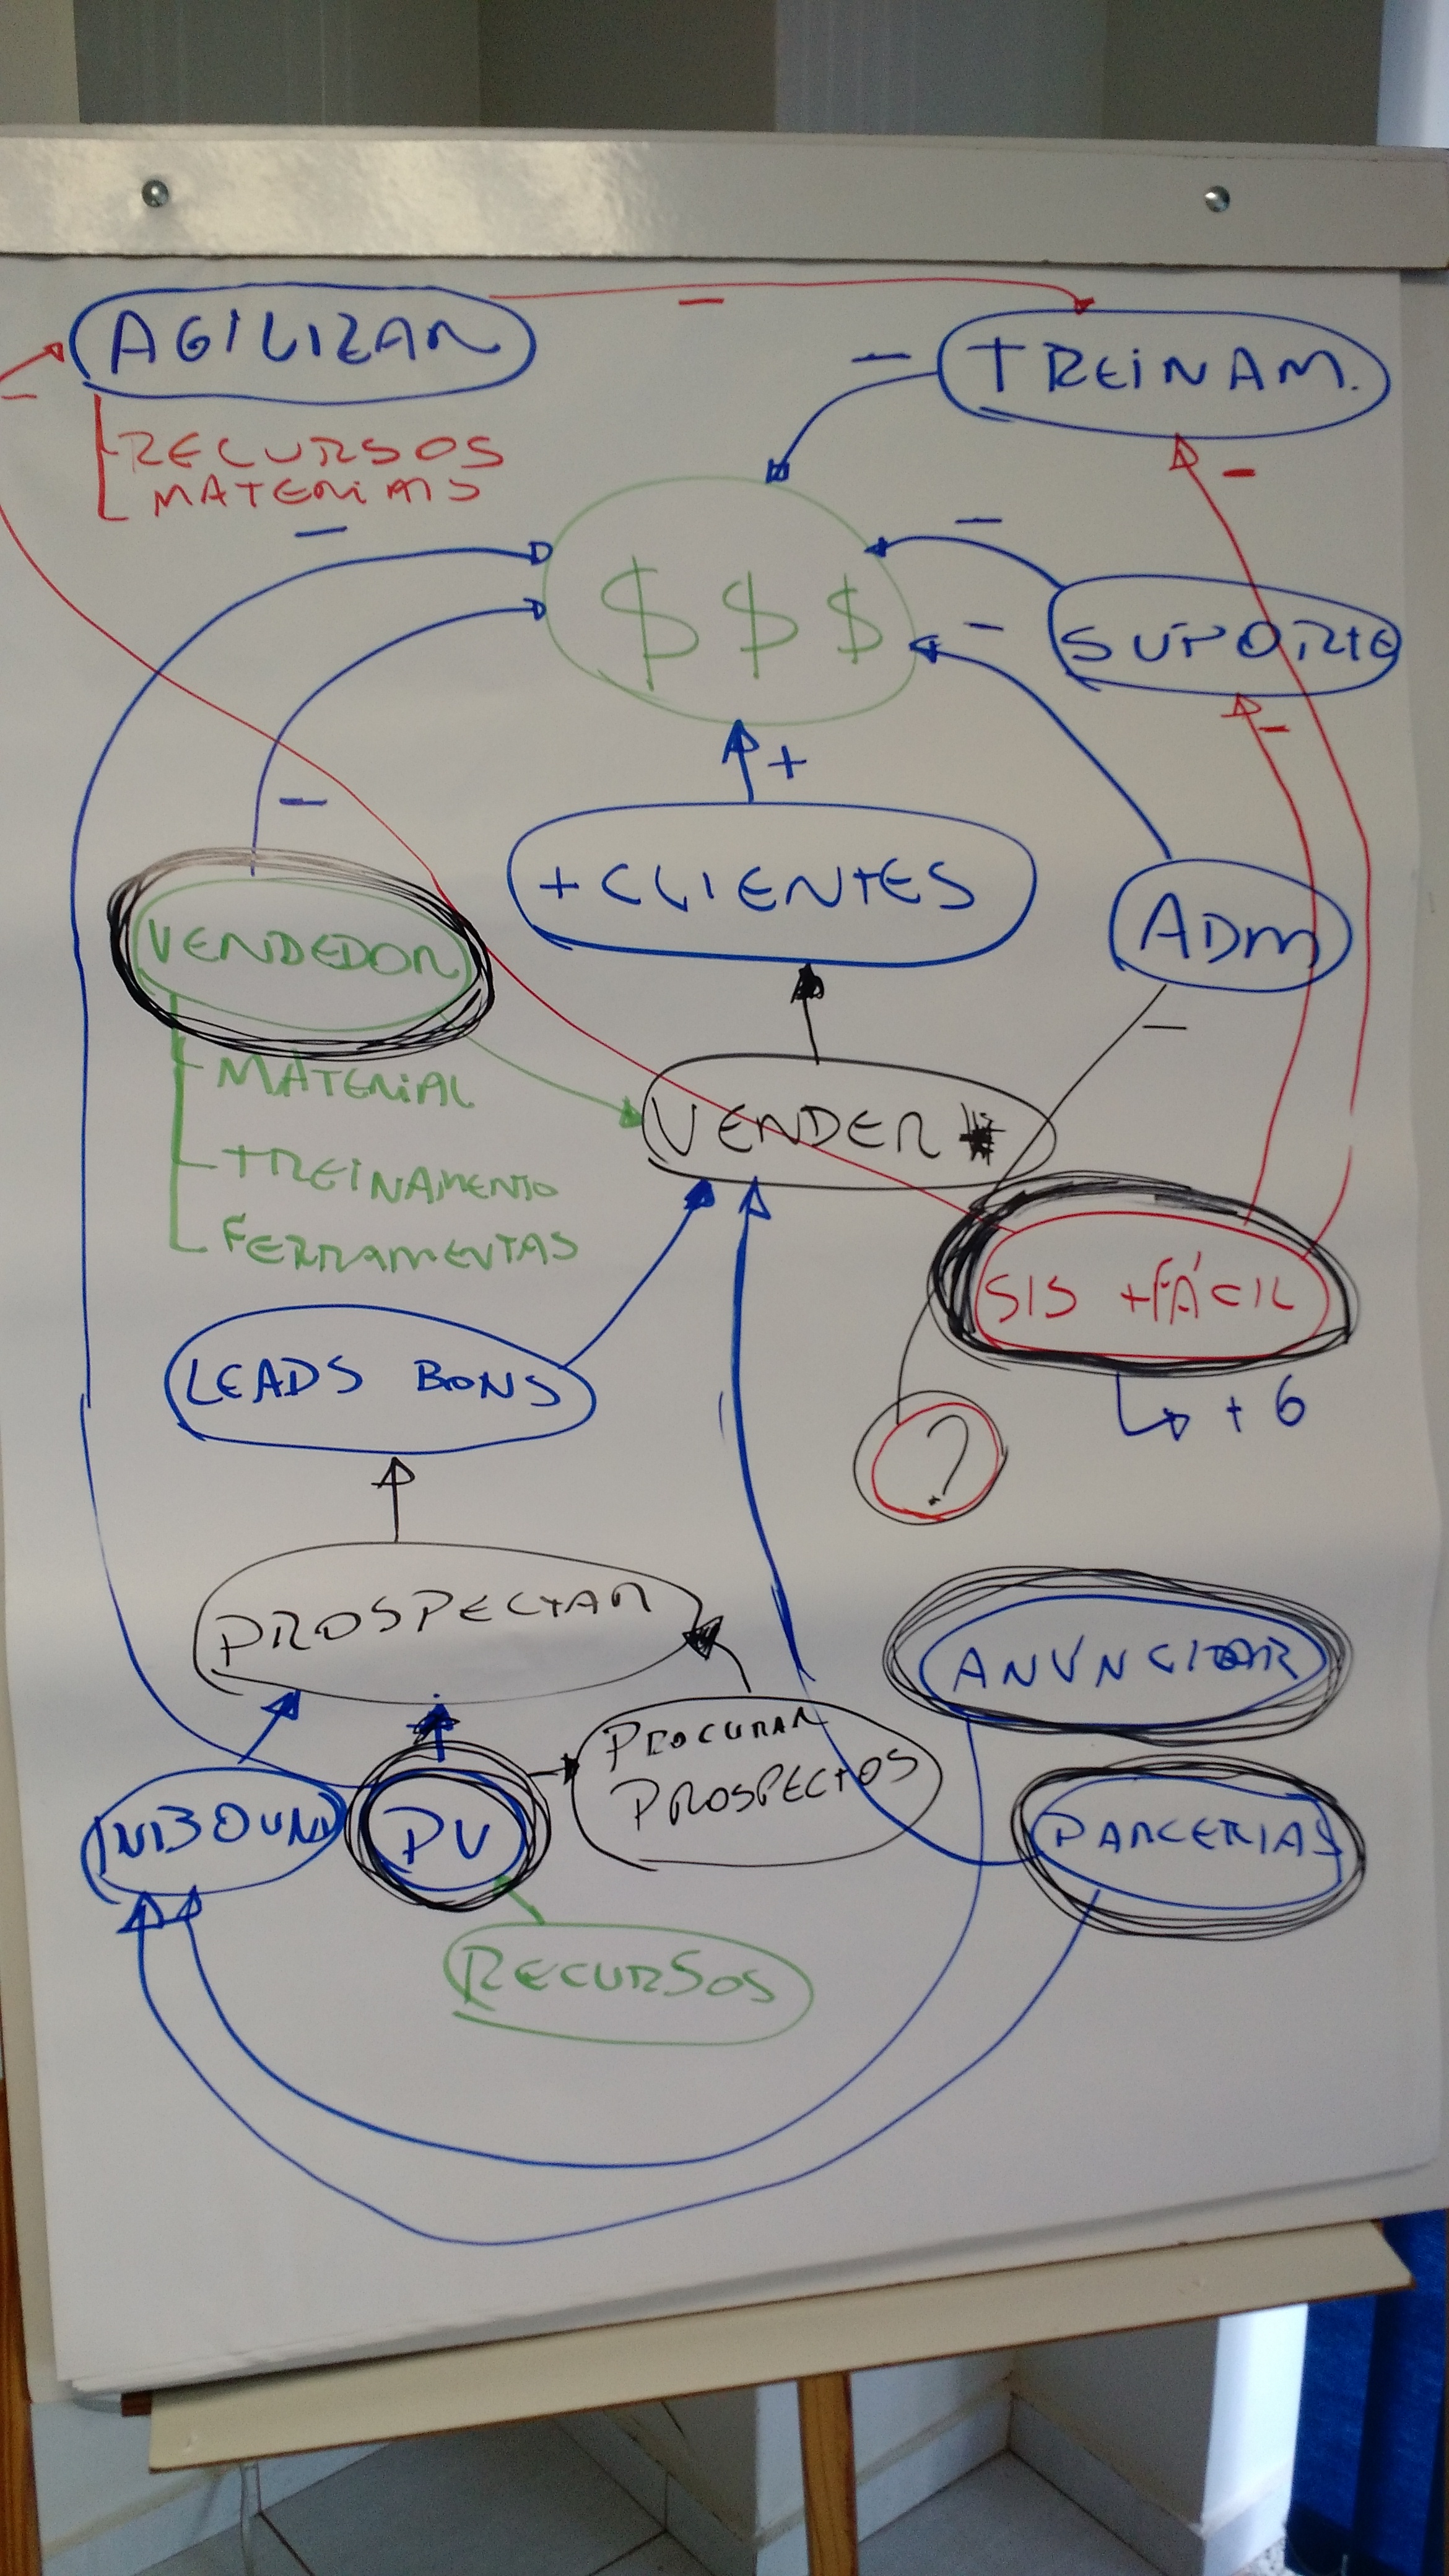 AGILIZAR
TREINAM.
RECURSOS
MATERIAIS
$ $ $
SUPORTE
+
+ CLIENTES
VENDEDOR
ADM
MATERIAL
VENDER *
TREINAMENTO
FERRAMENTAS
SIS +FÁCIL
LEADS BONS
+ 6
?
PROSPECTAR
ANUNCIAR
PROCURAR
PROSPECTOS
INBOUND
PV
PARCERIAS
RECURSOS